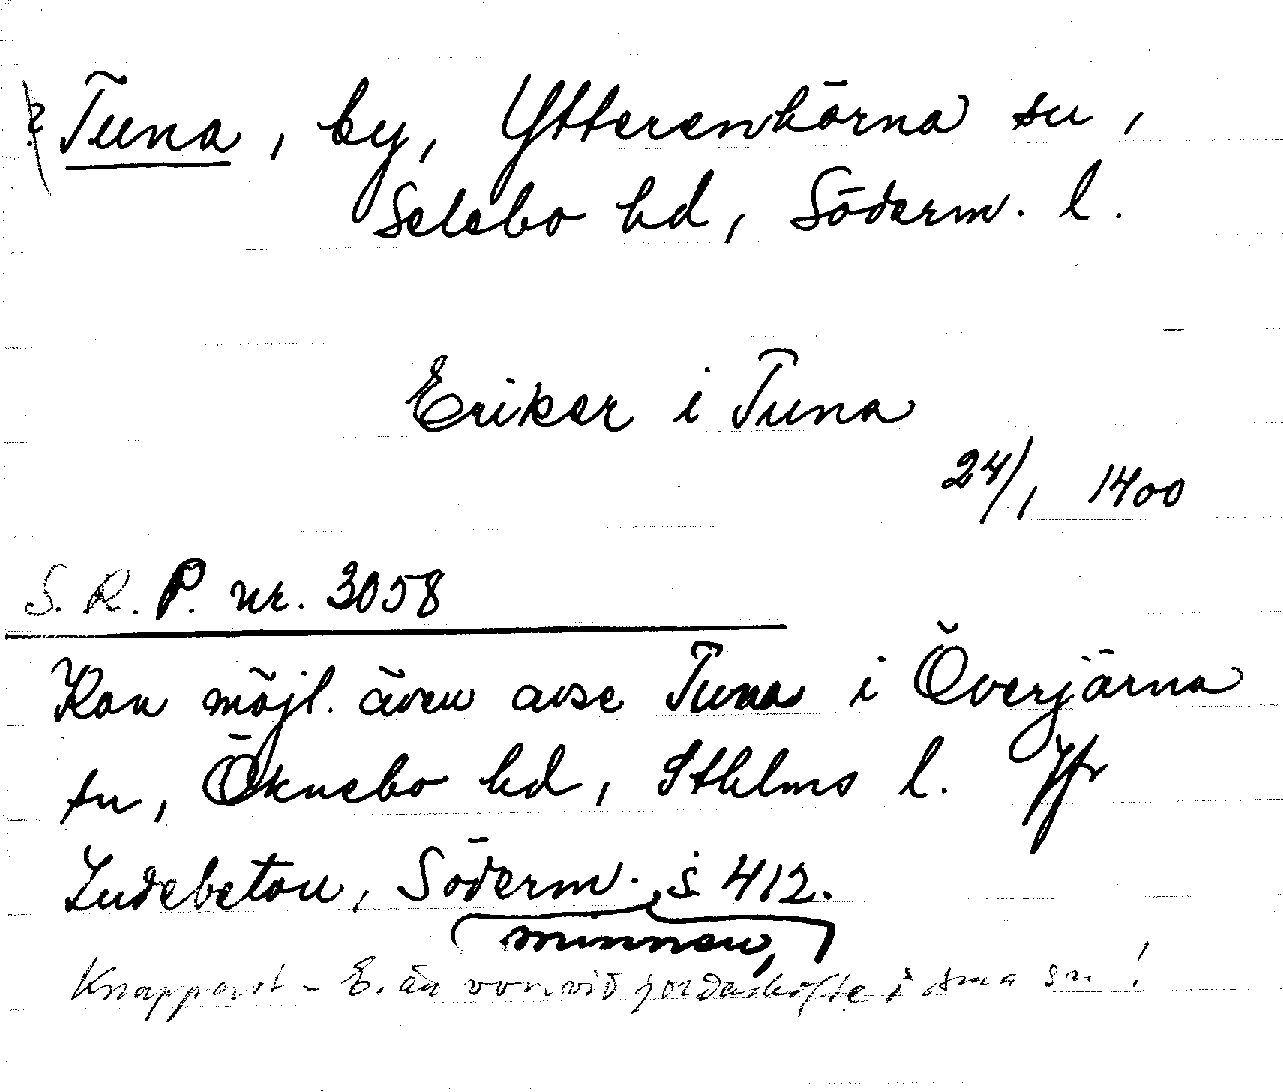 ? Tuna, by, Ytterenhörna sn,
Selebo hd, Söderm. l.
Eriker i Tuna
24/1 1400
S. R. P. nr. 3058
Kan möjl. även avse Tuna i Överjärna
sn, Öknebo hd, Sthlms l. Jfr
Indebetou, Söderm. s. 412.
minnen,
Knappast - E. är vorvid jordaskifte i sma sn!